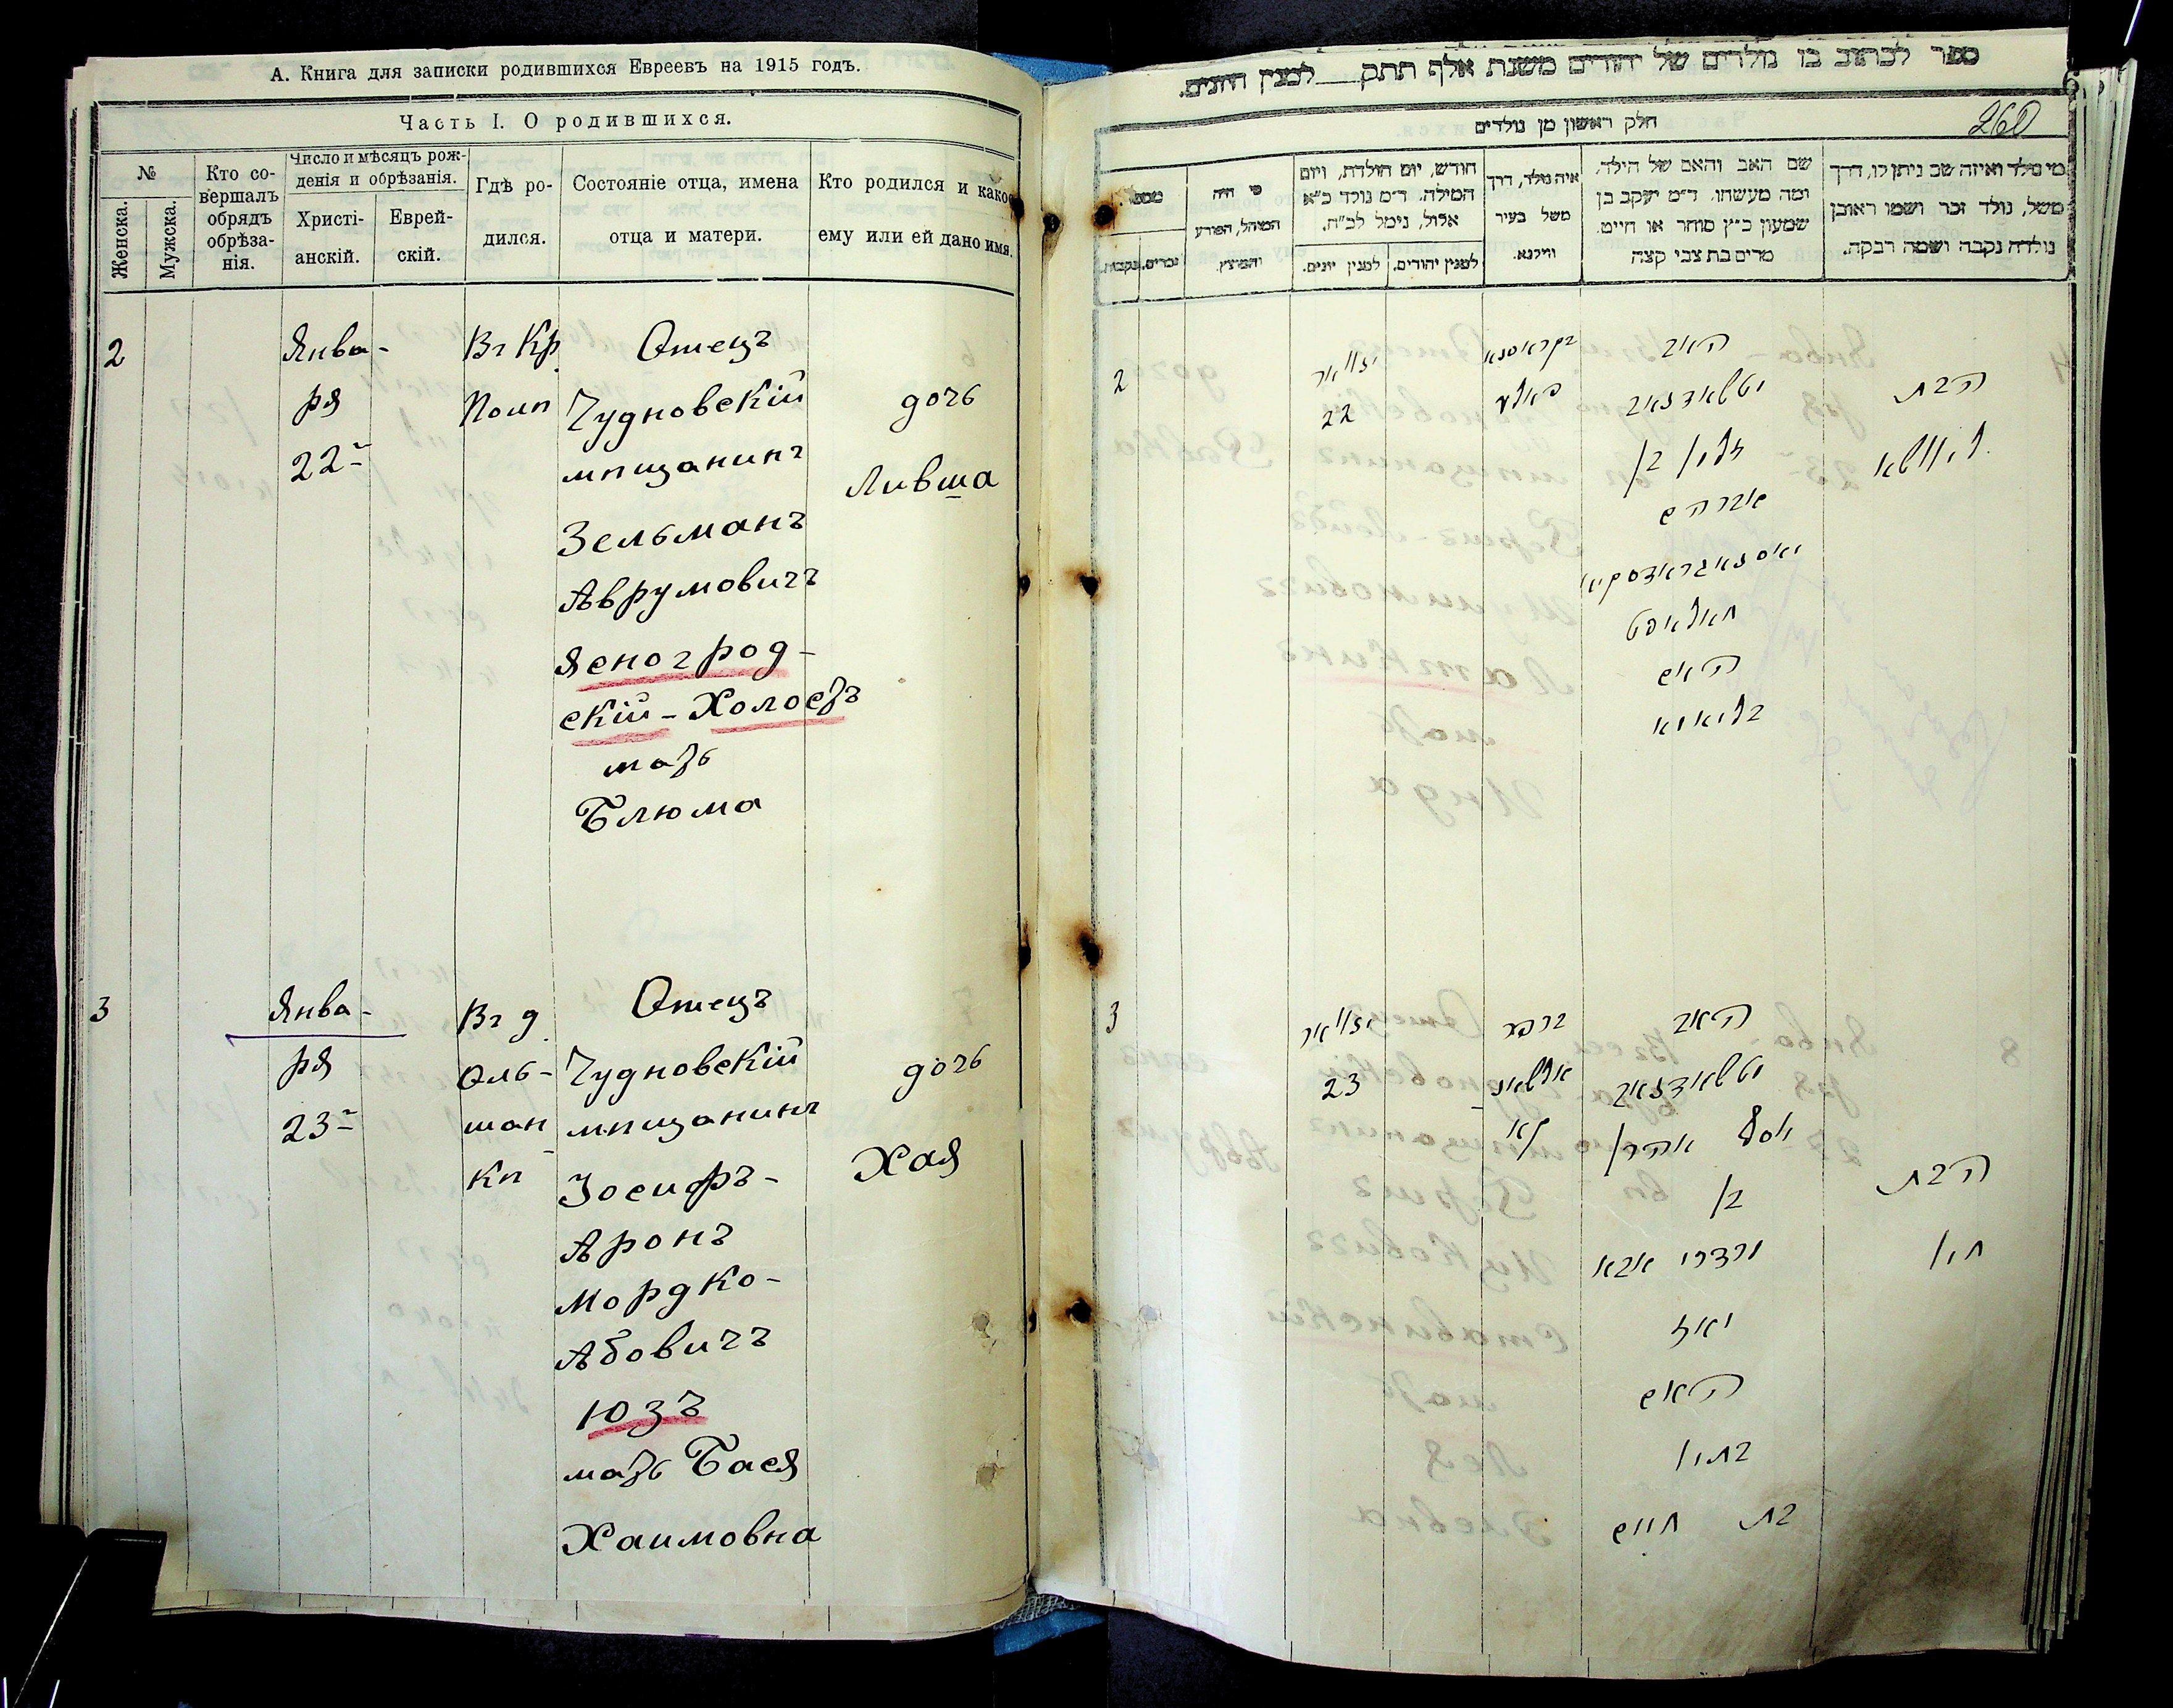 А. Книга для записки родившихся Евреевъ на 1915 годъ.
Часть I. О родившихся.
№
Женска.
Мужска.
Кто со-
вершалъ
обрядъ
обрѣза-
нія.
Число и мѣсяцъ рож-
денія и обрѣзанія.
Христі-
анскій.
Еврей-
скій.
Гдѣ ро-
дился.
Состояніе отца, имена
отца и матери.
Кто родился и какое
ему или ей дано имя.
2
Янва-
ря
22
Въ Кр.
Полп
Отецъ
Чудновскій
мѣщанинъ
Зельманъ
Аврумовичъ
Ясногрод-
скій-Холостъ
мать
Блюма
дочь
Ливша
3
Янва-
ря
23
Въ д.
Оль-
шан
кѣ
Отецъ
Чудновскій
мѣщанинъ
Іосифъ-
Аронъ
Мордко-
Абовичъ
Юзъ
мать Бася
Хаимовна
дочь
Хая
ספר לכתוב בו נולדים של יהודים משנת אלף תתק למנין היונים.
חלק ראשון מן נולדים
260
מי מילד ואיזה שב ניתן לו, דרך
משל, נולד זכר ושמו ראובן
נולדה נקבה ושמה רבקה.
שם האב והאם של הילד,
ומה מעשהו. ד״מ יעקב בן
שמעון כ״ץ סוחר או חייט
מרים בת צבי קצה
איה נולד, דרך
משל בעיר
ווילנא.
חודש, יום הולדת, ויום
המילה. ד״מ נולד כ״א
אלול, נימל לכ״ח.
למנין יהודים.
למנין יונים.
מי היה
המוהל, הפורע
והמוצץ
מספר
זכרים.
נקבות.
2
יאנוואר
22
האב
טשודנאוו
זלמן בן
אברהם
יאסנאגראדסקי
חאלאסט
האם
בלומא
הבת
ליוושא
3
יאנוואר
23
בכפר
אלשאנ
קא
האב
טשודנאוו
יוסף אהרן
בן
מרדכי אבא
יוז
האם
בתיה
בת חיים
הבת
חיה